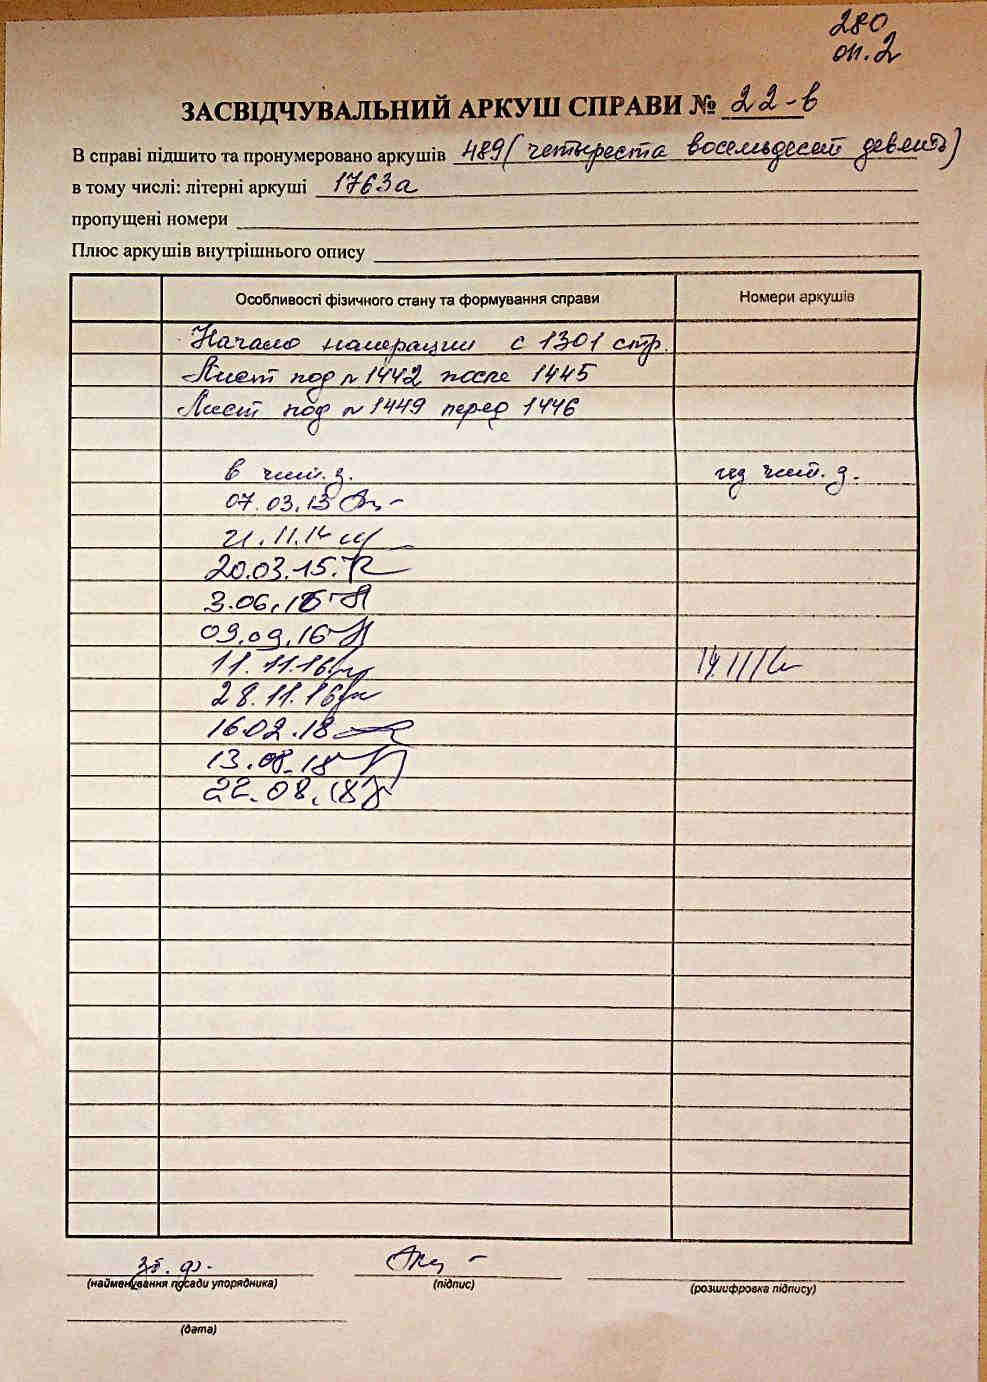 280
оп.2
ЗАСВІДЧУВАЛЬНИЙ АРКУШ СПРАВИ № 22-в
В справі підшито та пронумеровано аркушів 489 (четыреста восемьдесят девять)
в тому числі: літерні аркуші 1763а
пропущені номери
Плюс аркушів внутрішнього опису
Особливості фізичного стану та формування справи Номери аркушів
Начало нумерации с 1301 стр.
Лист под N 1442 после 1445
Лист под N 1449 перед 1446
в чит. з. из чит. з.
07.03.13
21.11.14
20.03.15.
3.06.16
09.09.16
11.11.16
28.11.16
16.02.18
13.08.18
22.08.18
зб. ф.
(найменування посади упорядника) (підпис) (розшифровка підпису)
(дата)